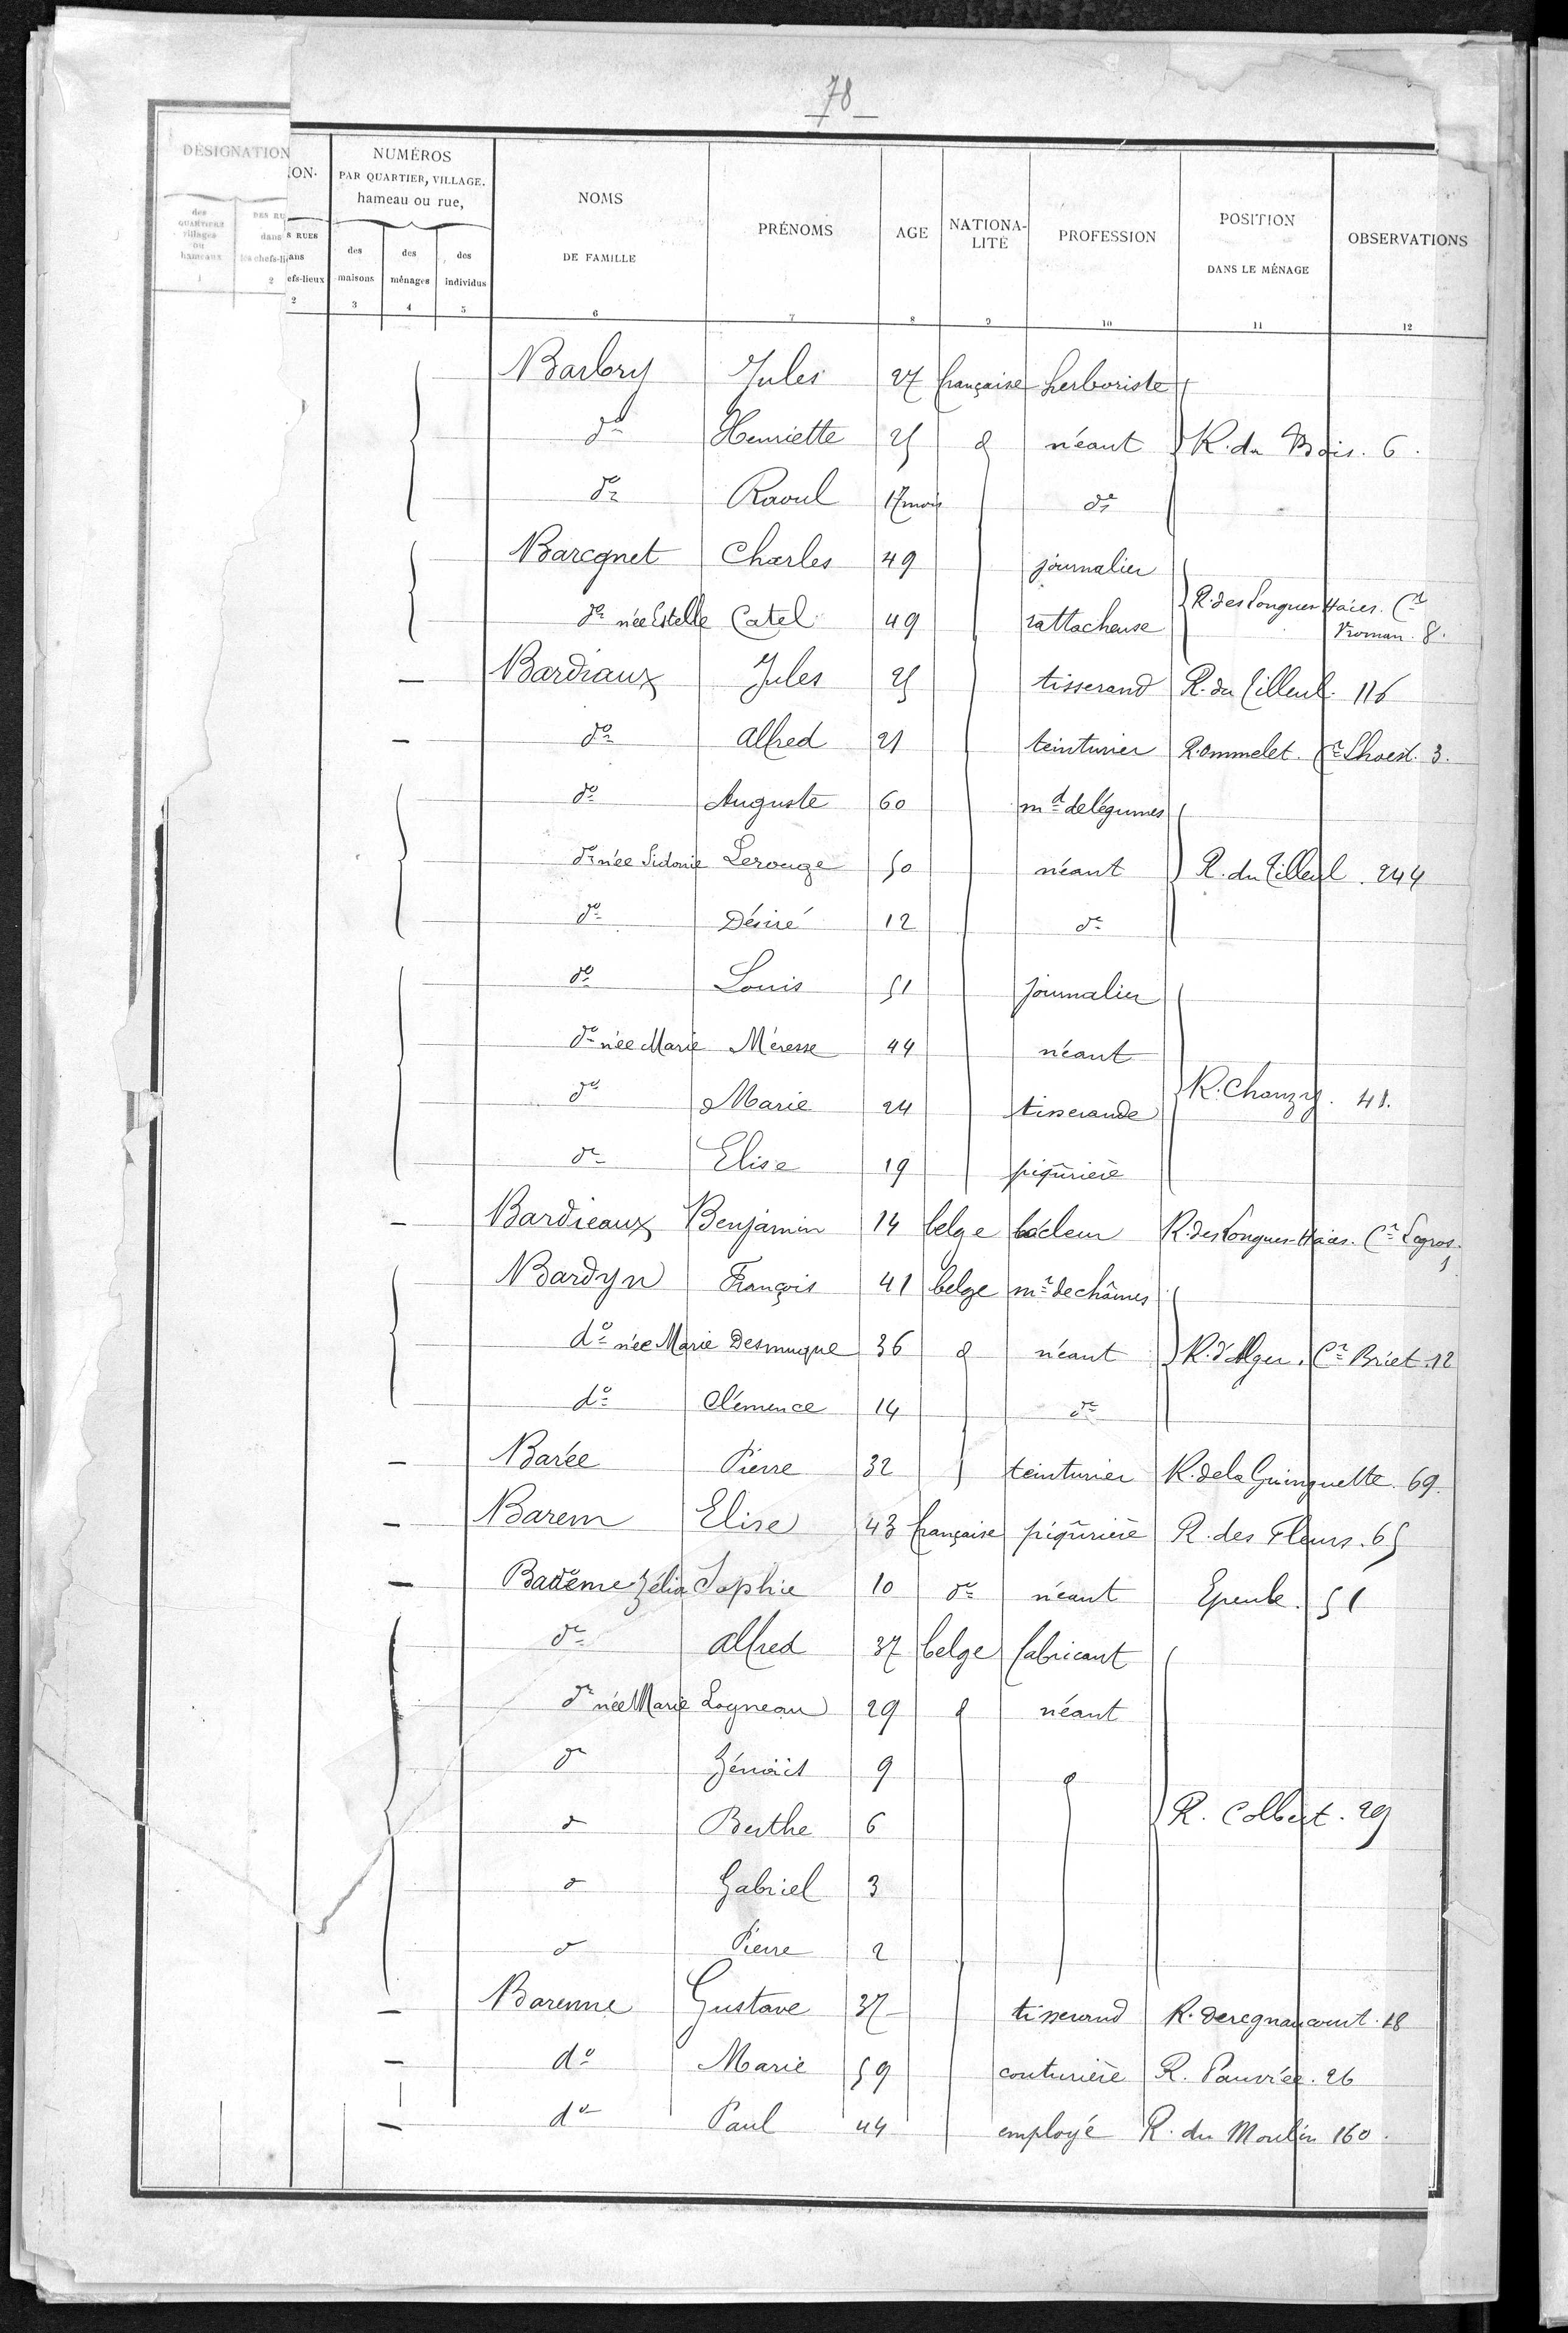 78
DÉSIGNATION
ION·
NUMÉROS
PAR QUARTIER, VILLAGE.
hameau ou rue,
NOMS
DE FAMILLE
PRÉNOMS
AGE
NATIONA-
LITÉ
PROFESSION
POSITION
DANS LE MÉNAGE
OBSERVATIONS
des
QUARTIERS
villages
ou
hameaux
DES RU
dans
les chefs-li
S RUES
ans
efs-lieux
des
maisons
des
ménages
des
individus
1 2 2 3 4 5 6 7 8 9 10 11 12
Barbry Jules 27 française herboriste
do Henriette 25 d néant R. du Bois. 6.
do Raoul 17 mois do
Barcqnet Charles 49 journalier
do née Estelle Catel 49 rattacheuse R. des Longues Haies. Cr
Vroman. 8.
— Bardiaux Jules 25 tisserand R. du Tilleul. 116
— do Alfred 21 teinturier R. Ommelet. Cr Lhoest. 3.
do Auguste 60 md de légumes
do née Sidonie Lerouge 50 néant R. du Tilleul. 244
do Désiré 12 do
do Louis 51 journalier
do née Marie Méresse 44 néant
do Marie 24 tisserande R. Chanzy. 41.
do Elise 19 piqûrière
— Bardieaux Benjamin 14 belge bâcleur R. des Longues-Haies. Cr Legros.
1
Bardyn François 41 belge md de chaînes
do née Marie 36 d néant R. d'Alger. Cr Briet. 12
do Clémence 14 do
— Barée Pierre 32 teinturier R. de la Guinguette. 69.
— Barem Elise 43 française piqûrière R. des Fleurs. 65
— Zélia Sophie 10 do néant Epeule. 51
do Alfred 37 belge fabricant
do née Marie Logneau 29 d néant
do 9 d
d Berthe 6 R. Colbert. 29
d Gabriel 3
d Pierre 2
— Barenne Gustave 37 tisserand R. Deregnaucourt. 18
— do Marie 59 couturière R. Pauvrée. 26
— do Paul 44 employé R. du Moulin 160.